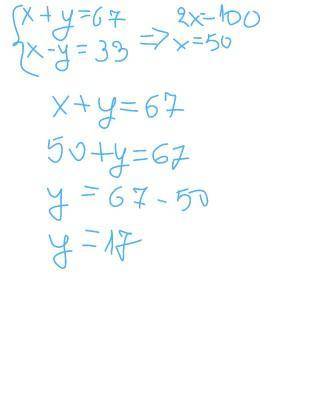 {x + y = 67
x - y = 33 => 2x = 100
x = 50
x + y = 67
50 + y = 67
y = 67 - 50
y = 17